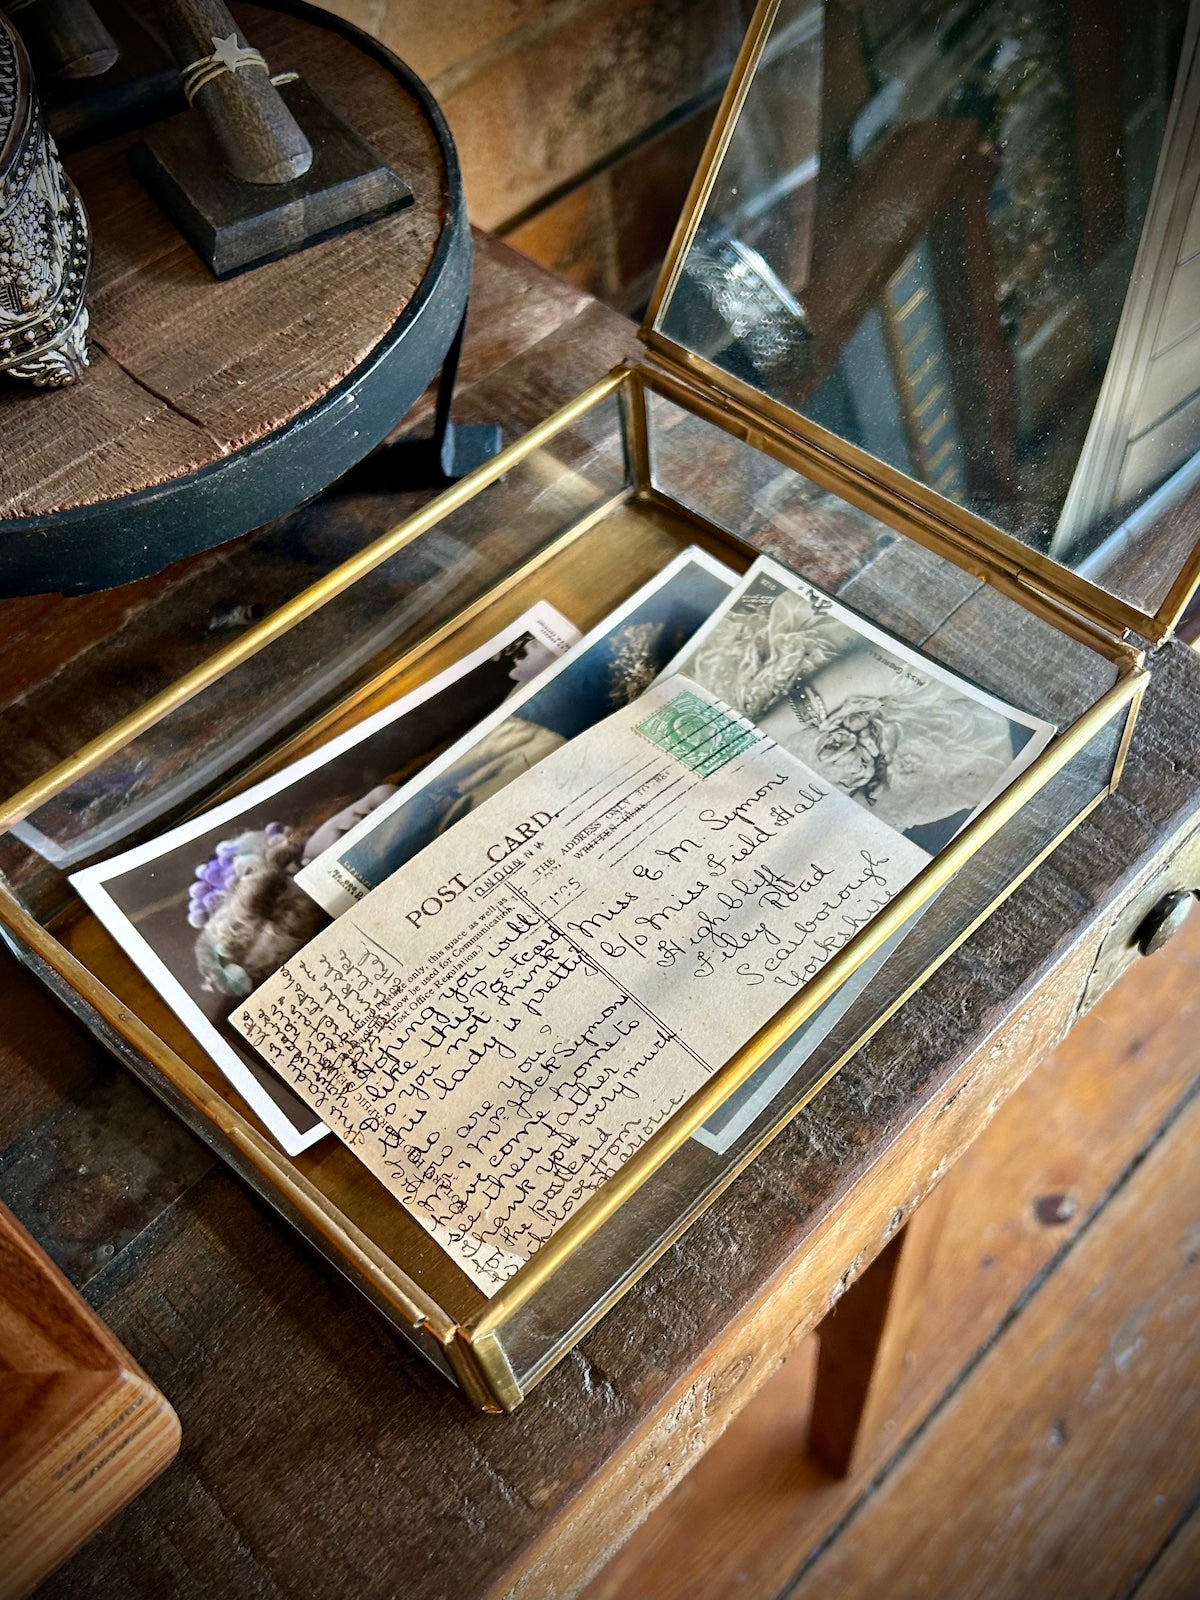 POST CARD.
LONDON. N.W.
THE ADDRESS ONLY TO BE
WRITTEN HERE.
only, this space as well as
may now be used for Communication.
(Post Office Regulation.)
Miss E M Symons
C/o Miss Field Hall
Highbliff
Filey Road
Scarborough
Yorkshire
Hoping you will
like this Postcard
do you not think
this lady is pretty
I do.
How are you?
Mr & Mrs Jack Symons
have come home to
see their father
Thank you very much
for the postcard
with love from
Marjorie
This lady is like
MISS GABRIEL